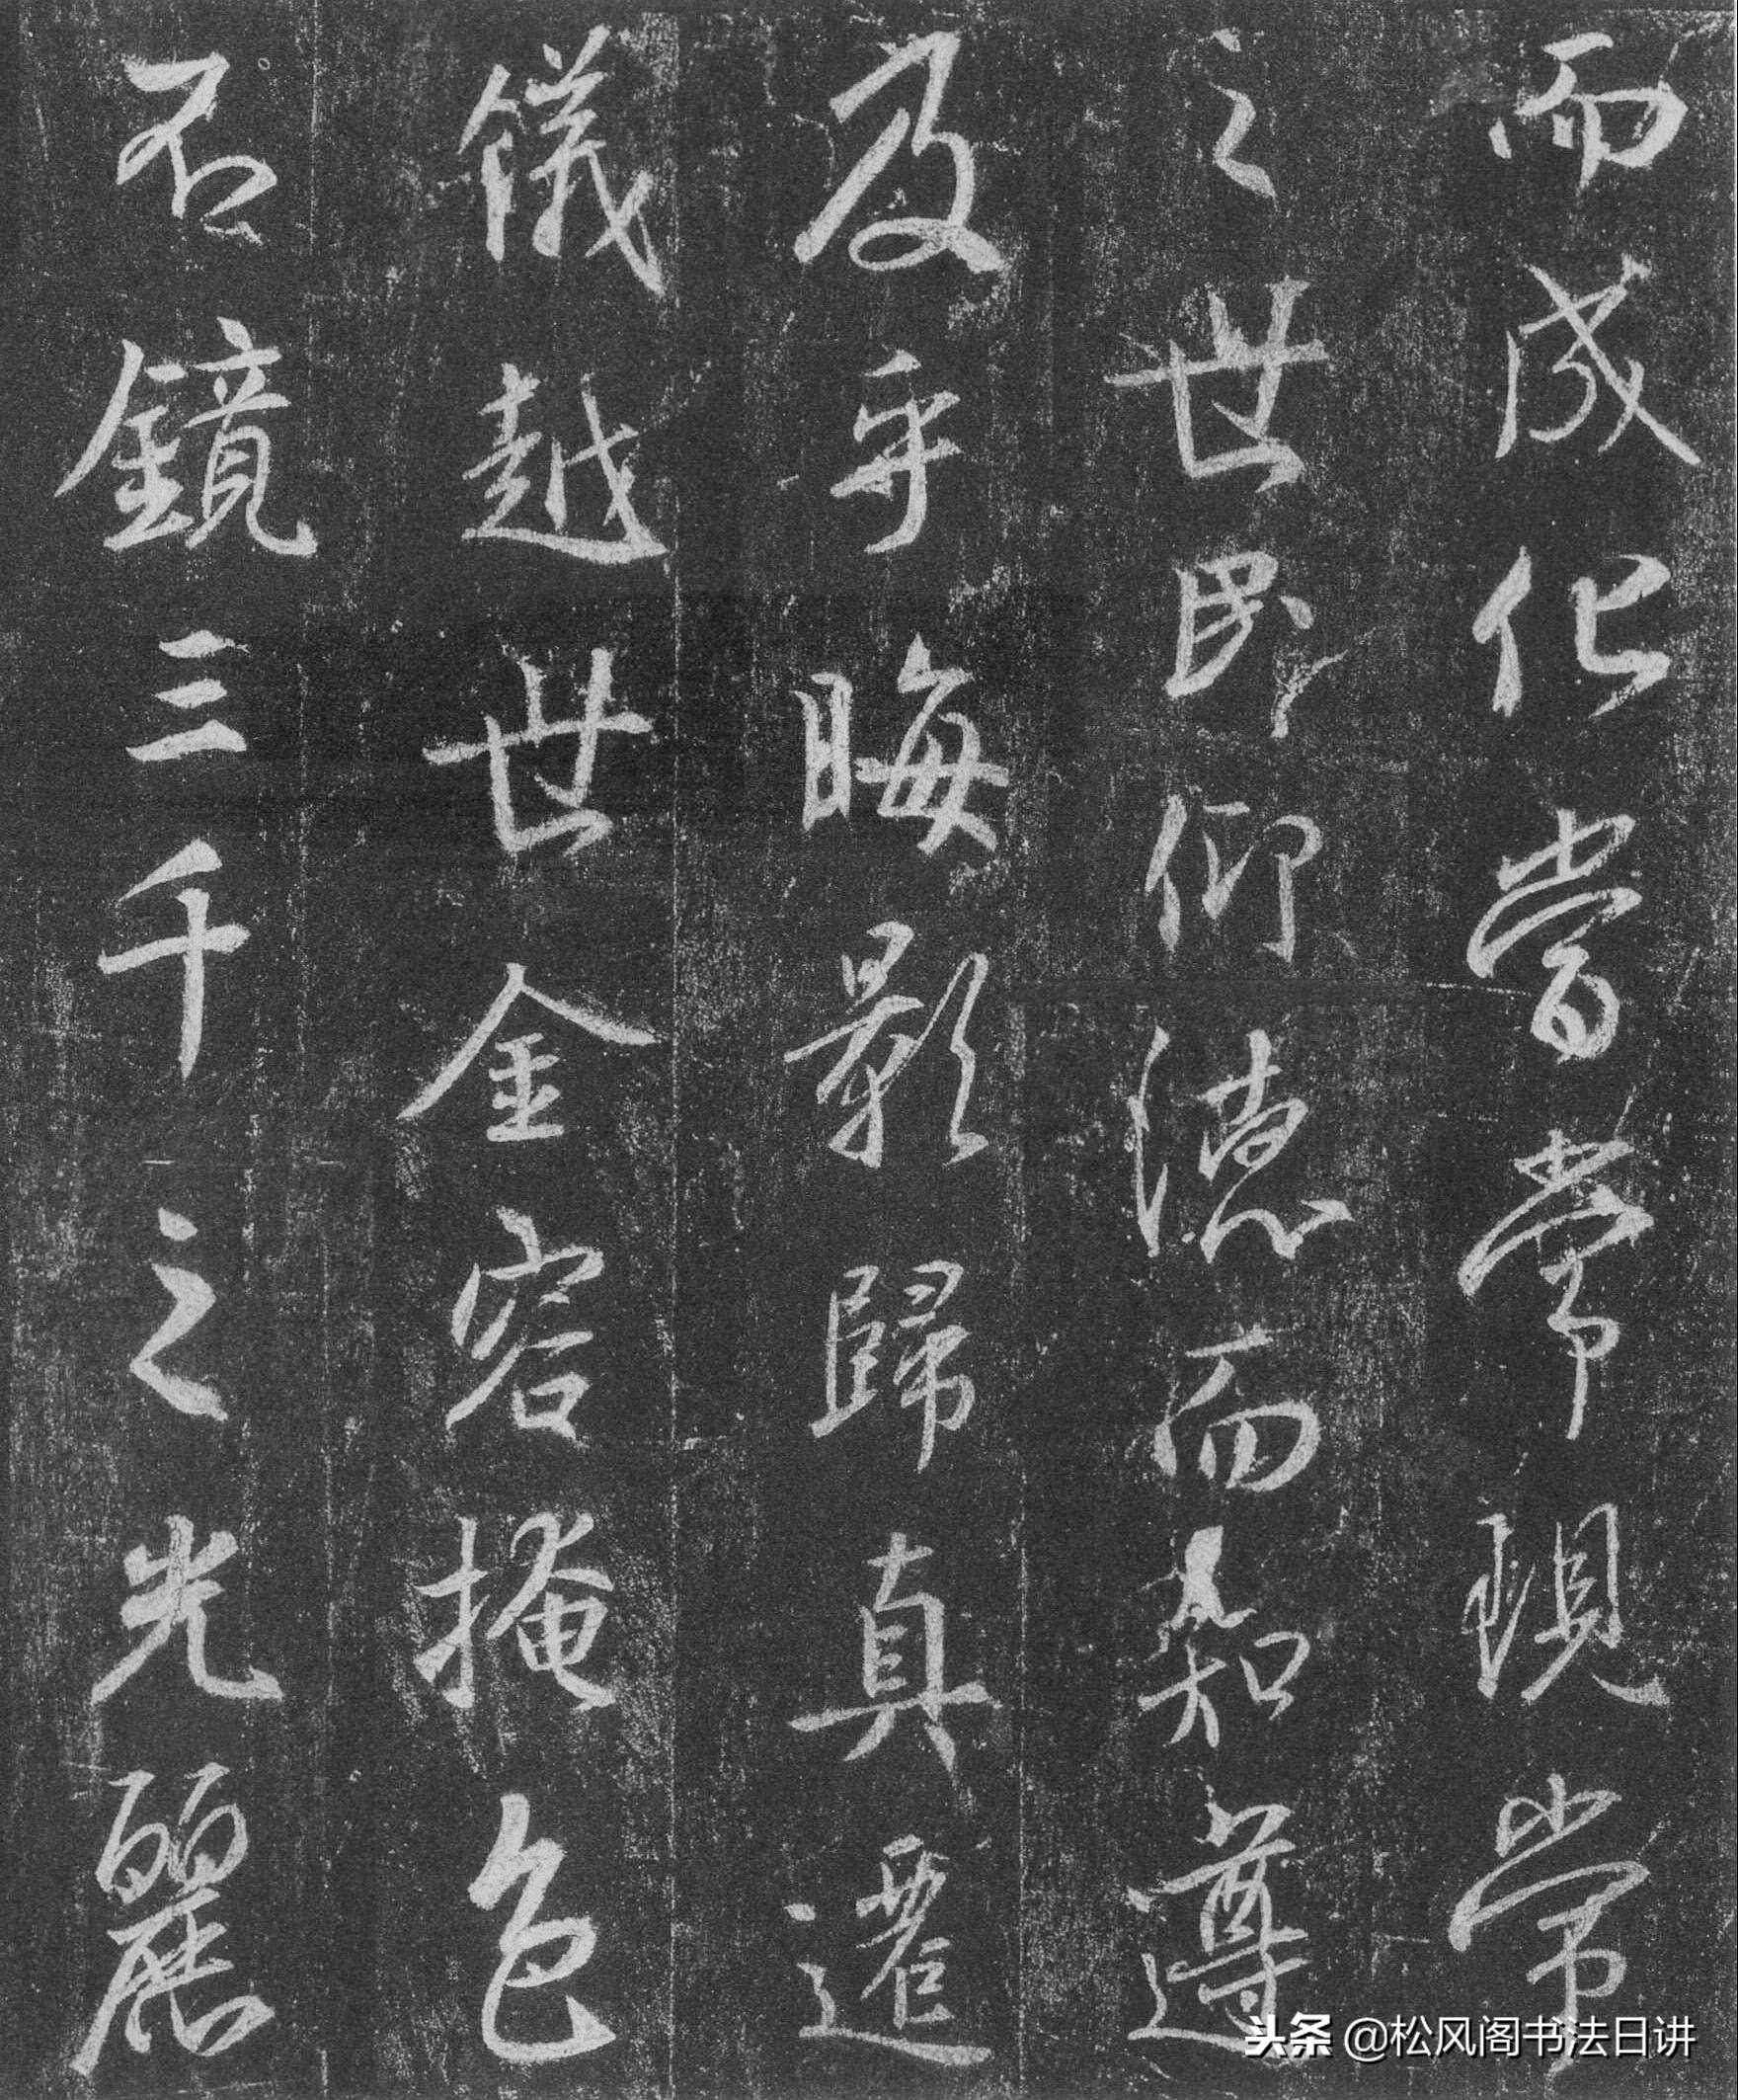 而成化當常現常
之世民仰德而知遵
及乎晦影歸真遷
儀越世金容掩色
不鏡三千之光麗
头条 @松风阁书法日讲